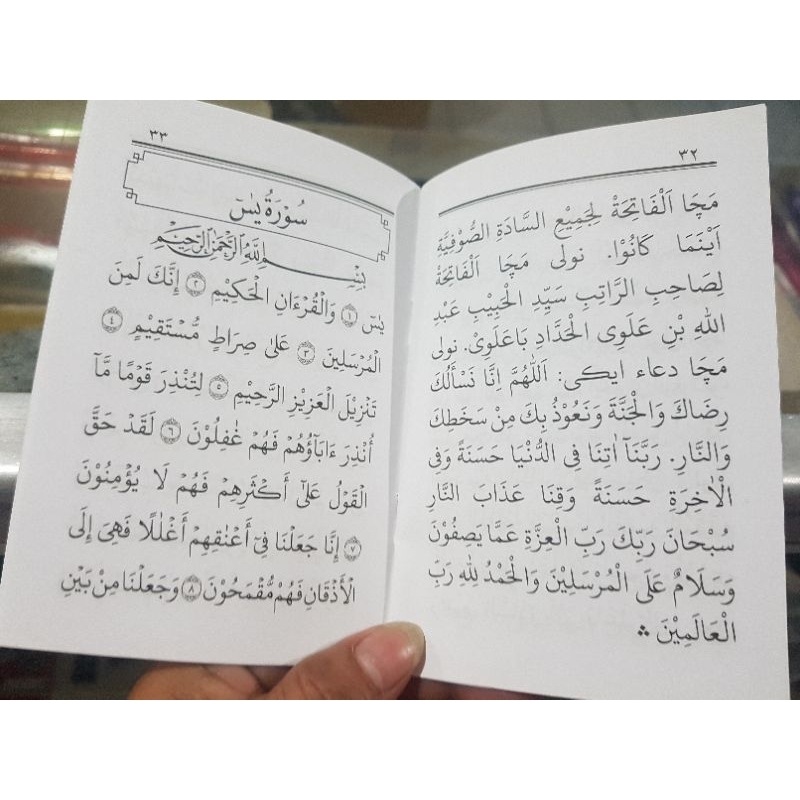 ٣٢
مَچَا اَلْفَاتِحَةْ لِجَمِيْعِ السَّادَةِ الصُّوْفِيَّةِ
اَيْنَمَا كَانُوْا. نولى مَچَا اَلْفَاتِحَةْ
لِصَاحِبِ الرَّاتِبِ سَيِّدِ الْحَبِيْبِ عَبْدِ
اللهِ بْنِ عَلَوِى الْحَدَّادِ بَاعَلَوِىْ. نولى
مَچَا دعاء ايكى: اَللّٰهُمَّ اِنَّا نَسْأَلُكَ
رِضَاكَ وَالْجَنَّةَ وَنَعُوْذُ بِكَ مِنْ سَخَطِكَ
وَالنَّارِ. رَبَّنَآ اٰتِنَا فِى الدُّنْيَا حَسَنَةً وَفِى
الْاٰخِرَةِ حَسَنَةً وَقِنَا عَذَابَ النَّارِ
سُبْحَانَ رَبِّكَ رَبِّ الْعِزَّةِ عَمَّا يَصِفُوْنَ
وَسَلَامٌ عَلَى الْمُرْسَلِيْنَ وَالْحَمْدُ لِلهِ رَبِّ
الْعَالَمِيْنَ
٣٣
سُوْرَةُ يٰسٓ
بِسْمِ اللّٰهِ الرَّحْمٰنِ الرَّحِيْمِ
يٰسٓ ١ وَالْقُرْءَانِ الْحَكِيْمِ ٢ إِنَّكَ لَمِنَ
الْمُرْسَلِيْنَ ٣ عَلٰى صِرَاطٍ مُّسْتَقِيْمٍ ٤
تَنْزِيْلَ الْعَزِيْزِ الرَّحِيْمِ ٥ لِتُنْذِرَ قَوْمًا مَّآ
أُنْذِرَ ءَابَآؤُهُمْ فَهُمْ غٰفِلُوْنَ ٦ لَقَدْ حَقَّ
الْقَوْلُ عَلٰٓى أَكْثَرِهِمْ فَهُمْ لَا يُؤْمِنُوْنَ
٧ إِنَّا جَعَلْنَا فِيْٓ أَعْنٰقِهِمْ أَغْلٰلًا فَهِىَ إِلَى
الْأَذْقَانِ فَهُمْ مُّقْمَحُوْنَ ٨ وَجَعَلْنَا مِنْ بَيْنِ